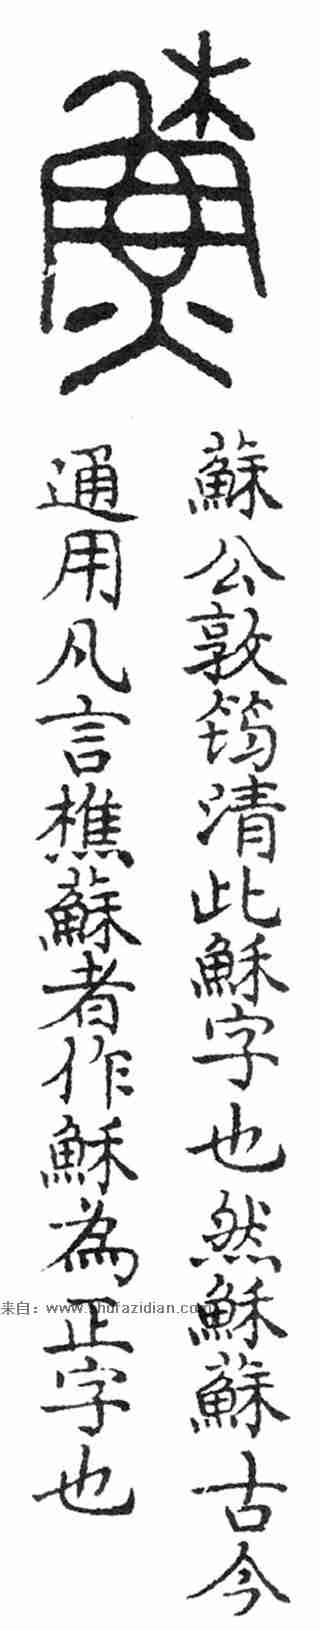 穌
蘇公敦筠清此穌字也然穌蘇古今
通用凡言樵蘇者作穌為正字也
来自：www.shufazidian.com